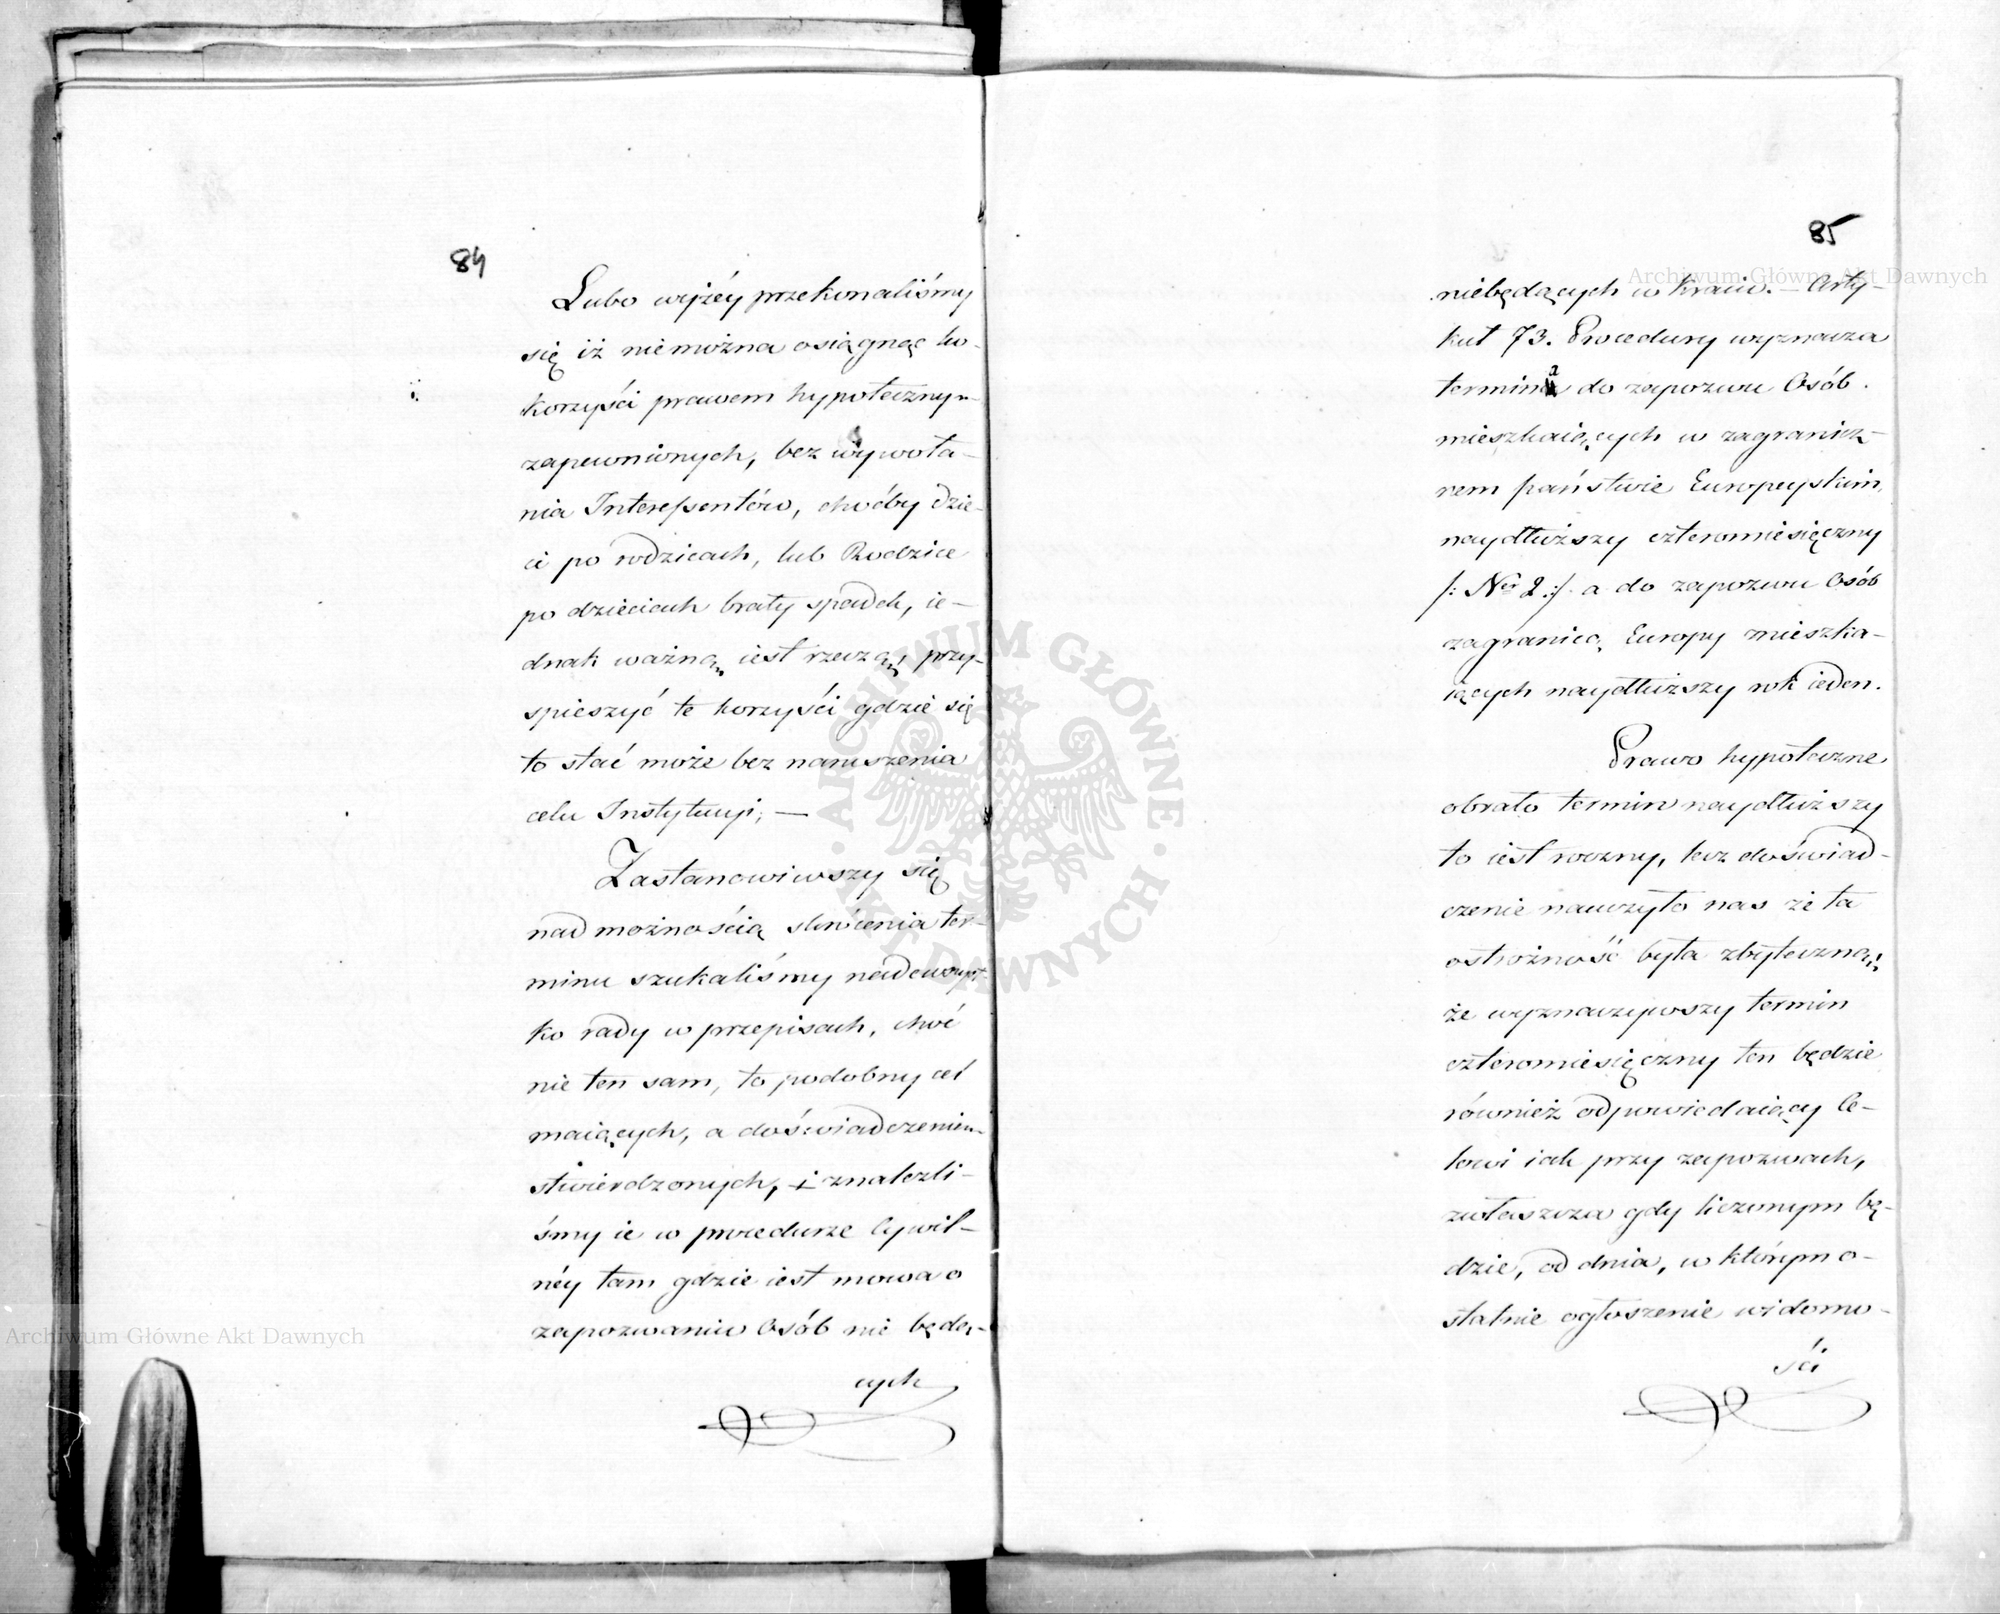 84
Lubo wyżéy przekonaliśmy
się iż niemożna osiągnąć ko-
korzyści prawem hypotecznym
zapewnionych, bez wywoła-
nia Interessentów, choćby dzie-
ci po rodzicach, lub Rodzice
po dzieciach brały spadek, ie-
dnak ważną iest rzeczą, przy-
spieszyć te korzyści gdzie się
to stać może bez naruszenia
celu Instytucyi; —
Zastanowiwszy się
nad możnością skrócenia ter-
minu szukaliśmy nadewszyst-
ko rady w przepisach, choć
nie ten sam, to podobny cel
maiących, a doświadczeniem
stwierdzonych, i znaleźli-
śmy ie w procedurze Cywil-
néy tam gdzie iest mowa o
zapozwaniu Osób nie będą-
cych
85
niebędących w Kraiu. — Arty-
kuł 73. Procedury wyznacza
termina do zapozwu Osób
mieszkaiących w zagranicz-
nem państwie Europeyskim,
naydłuższy czteromiesięczny
/: Nr 2 :/ a do zapozwu Osób
zagranicą Europy mieszka-
iących naydłuższy rok ieden.
Prawo hypoteczne
obrało termin naydłuższy
to iest roczny, lecz doświad-
czenie nauczyło nas że ta
ostrożność była zbyteczną;
że wyznaczywszy termin
czteromiesięczny ten będzie
również odpowiedaiący Ce-
lowi iak przy zapozwach,
zwłaszcza gdy liczonym bę-
dzie, od dnia, w którym o-
statnie ogłoszenie wiadomo-
ści
Archiwum Główne Akt Dawnych
Archiwum Główne Akt Dawnych
ARCHIWUM GŁÓWNE AKT DAWNYCH